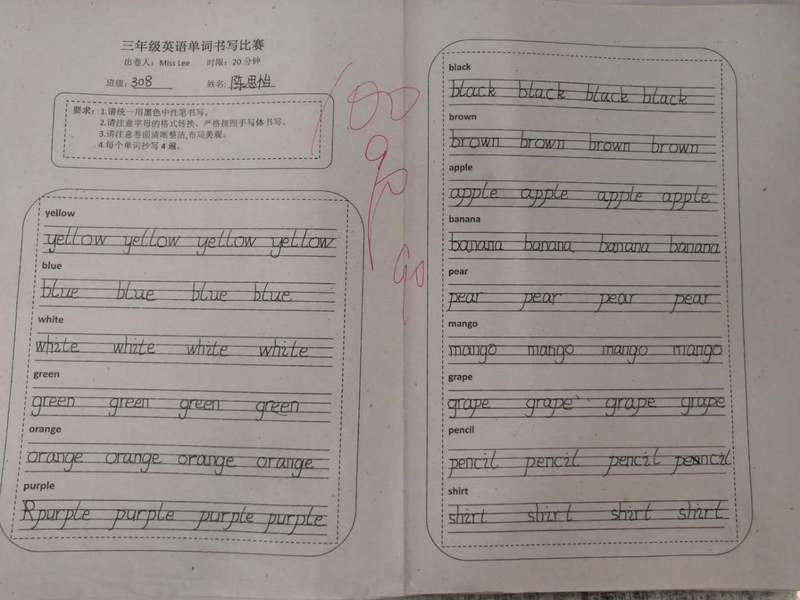 三年级英语单词书写比赛
出卷人：Miss Lee 时限：20分钟
班级：308 姓名：陈思怡
要求：1.请统一用黑色中性笔书写。
2.请注意字母的格式转换，严格按照手写体书写。
3.请注意卷面清晰整洁,布局美观。
4.每个单词抄写 4 遍。
yellow
yellow yellow yellow yellow
blue
blue blue blue blue
white
white white white white
green
green green green green
orange
orange orange orange orange
purple
Rpurple purple purple purple
100
90
90
black
black black black black
brown
brown brown brown brown
apple
apple apple apple apple
banana
banana banana banana banana
pear
pear pear pear pear
mango
mango mango mango mango
grape
grape grape grape grape
pencil
pencil pencil pencil pencil
shirt
shirt shirt shirt shirt